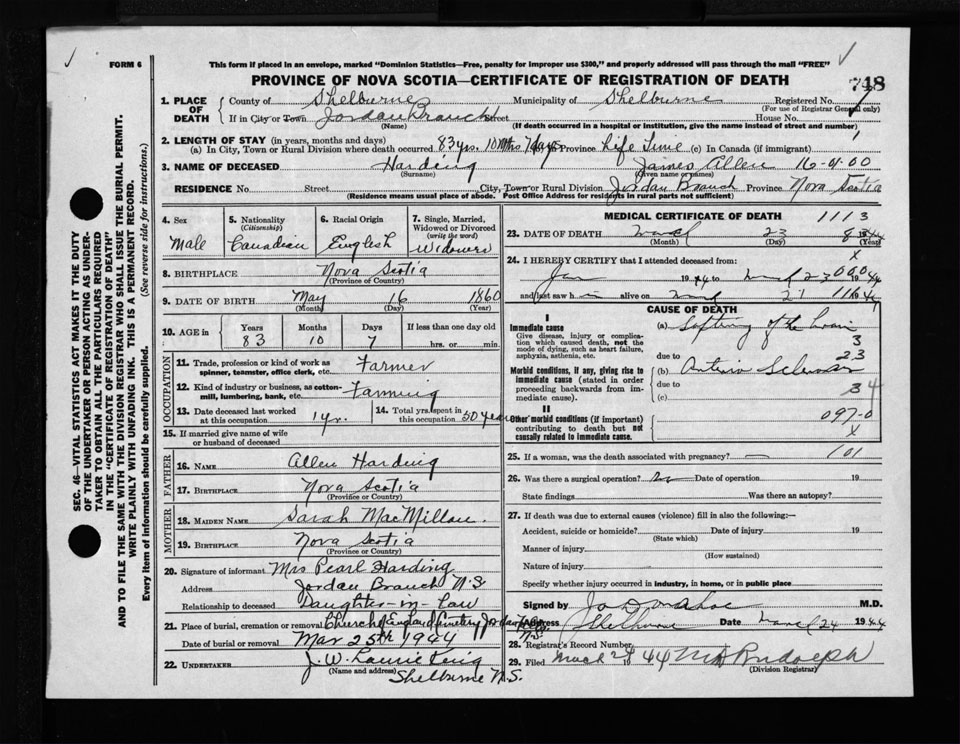 FORM 6
This form if placed in an envelope, marked "Dominion Statistics—Free, penalty for improper use $300," and properly addressed will pass through the mail "FREE"
PROVINCE OF NOVA SCOTIA—CERTIFICATE OF REGISTRATION OF DEATH
748
1. PLACE OF DEATH
County of Shelburne Municipality of Shelburne Registered No.
(For use of Registrar General only)
If in City or Town Jordan Branch Street House No.
(Name) (If death occurred in a hospital or institution, give the name instead of street and number)
2. LENGTH OF STAY (in years, months and days)
(a) In City, Town or Rural Division where death occurred 83 yrs. 10 Mths 7 days (b) Province Life Time (c) In Canada (if immigrant)
3. NAME OF DECEASED Harding James Allen 16-01-00
(Surname) (Given name or names)
RESIDENCE No. Street City, Town or Rural Division Jordan Branch Province Nova Scotia
(Residence means usual place of abode. Post Office Address for residents in rural parts not sufficient)
4. Sex
Male
5. Nationality
(Citizenship)
Canadian
6. Racial Origin
English
7. Single, Married, Widowed or Divorced
(write the word)
Widower
8. BIRTHPLACE Nova Scotia
(Province or Country)
9. DATE OF BIRTH May 16 1860
(Month) (Day) (Year)
10. AGE in
Years Months Days If less than one day old
83 10 7 hrs. or min.
OCCUPATION
11. Trade, profession or kind of work as spinner, teamster, office clerk, etc. Farmer
12. Kind of industry or business, as cotton-mill, lumbering, bank, etc. Farming
13. Date deceased last worked at this occupation 1 yr.
14. Total yrs. spent in this occupation 50 years
15. If married give name of wife or husband of deceased
FATHER
16. NAME Allen Harding
17. BIRTHPLACE Nova Scotia
(Province or Country)
MOTHER
18. MAIDEN NAME Sarah MacMillan.
19. BIRTHPLACE Nova Scotia
(Province or Country)
20. Signature of informant Mrs Pearl Harding
Address Jordan Branch N.S
Relationship to deceased Daughter-in-law
21. Place of burial, cremation or removal Church of England Cemetery Jordan Falls N.S.
Date of burial or removal Mar 25th 1944
22. UNDERTAKER J. W. Laurie King
(Name and address) Shelburne N.S.
MEDICAL CERTIFICATE OF DEATH 1113
23. DATE OF DEATH March 23
(Month) (Day) (Year)
24. I HEREBY CERTIFY that I attended deceased from:
Jan 1944 to March 23 1944
and last saw h alive on March 21 1944
CAUSE OF DEATH
I
Immediate cause
Give disease, injury or complication which caused death, not the mode of dying, such as heart failure, asphyxia, asthenia, etc.
(a) Softening of the brain 3
due to 23
Morbid conditions, if any, giving rise to immediate cause (stated in order proceeding backwards from immediate cause).
(b)
due to 34
(c)
II
Other morbid conditions (if important) contributing to death but not causally related to immediate cause.
097-0
X
25. If a woman, was the death associated with pregnancy? — 101
26. Was there a surgical operation? no Date of operation 19
State findings Was there an autopsy?
27. If death was due to external causes (violence) fill in also the following:—
Accident, suicide or homicide? Date of injury 19
(State which)
Manner of injury
(How sustained)
Nature of injury
Specify whether injury occurred in industry, in home, or in public place
Signed by M.D.
Address Shelburne Date March 24 1944
28. Registrar's Record Number
29. Filed 44 Rudolph
(Division Registrar)
SEC. 46—VITAL STATISTICS ACT MAKES IT THE DUTY OF THE UNDERTAKER OR PERSON ACTING AS UNDERTAKER TO OBTAIN ALL THE PARTICULARS REQUIRED IN THE "CERTIFICATE OF REGISTRATION OF DEATH" AND TO FILE THE SAME WITH THE DIVISION REGISTRAR WHO SHALL ISSUE THE BURIAL PERMIT.
WRITE PLAINLY WITH UNFADING INK. THIS IS A PERMANENT RECORD.
Every item of information should be carefully supplied. (See reverse side for instructions.)